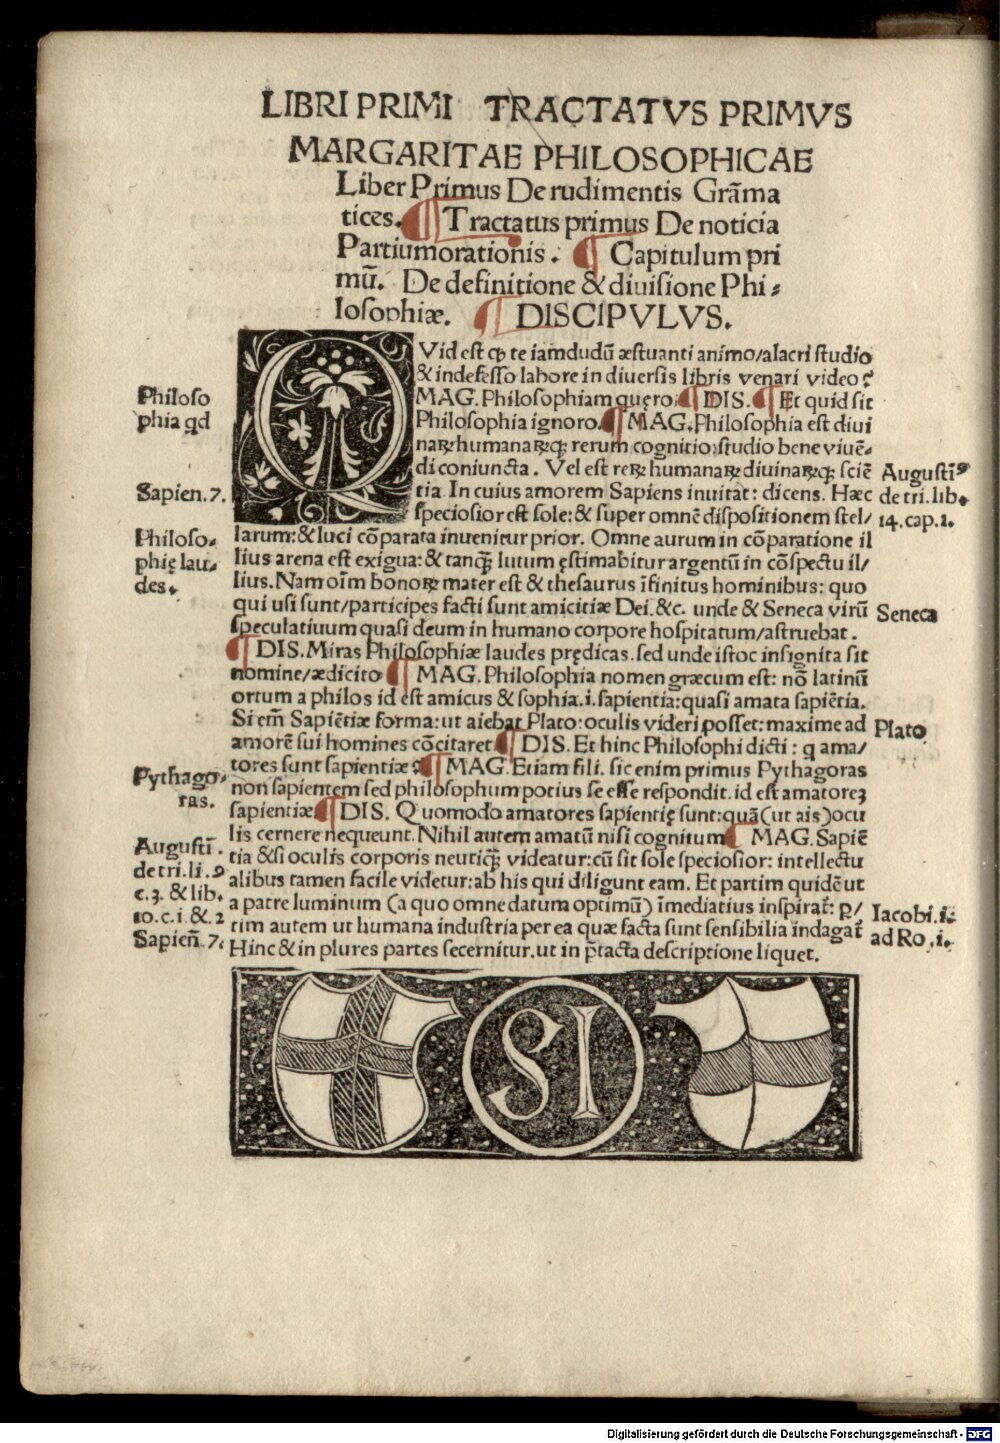 LIBRI PRIMI TRACTATVS PRIMVS
MARGARITAE PHILOSOPHICAE
Liber Primus De rudimentis Grãma
tices. ¶ Tractatus primus De noticia
Partiumorationis. ¶ Capitulum pri
mũ. De definitione & diuisione Phi⸗
losophiæ. ¶ DISCIPVLVS.
QVid est ꝙ te iamdudũ æstuanti animo/alacri studio
& indefesso labore in diuersis libris venari video?
Philoso
phia qd
MAG. Philosophiam quęro: ¶ DIS. ¶ Et quid sit
Philosophia ignoro. ¶ MAG. Philosophia est diui
naꝝ humanaꝝqꝫ rerum cognitio: studio bene viuẽ⸗
di coniuncta. Vel est reꝝ humanaꝝ diuinaꝝqꝫ sciẽ
Augustiꝰ
de tri. lib.
14. cap. 1.
Sapien. 7.
tia. In cuius amorem Sapiens inuitat: dicens. Hæc
speciosior est sole: & super omnẽ dispositionem stel/
larum: & luci cõparata inuenitur prior. Omne aurum in cõparatione il
Philoso⸗
phię lau⸗
des.
lius arena est exigua: & tanqꝫ lutum ęstimabitur argentũ in cõspectu il/
lius. Nam oĩm bonoꝝ mater est & thesaurus ĩfinitus hominibus: quo
qui usi sunt/participes facti sunt amicitiæ Dei. &c. unde & Seneca virũ
Seneca
speculatiuum quasi deum in humano corpore hospitatum/astruebat.
¶ DIS. Miras Philosophiæ laudes prędicas. sed unde istoc insignita sit
nomine/ædicito ¶ MAG. Philosophia nomen græcum est: nõ latinũ
ortum a philos id est amicus & sophia. i. sapientia: quasi amata sapiẽtia.
Si em̃ Sapiẽtiæ forma: ut aiebat Plato: oculis videri posset: maxime ad
Plato
amorẽ sui homines cõcitaret ¶ DIS. Et hinc Philosophi dicti: q ama/
tores sunt sapientiæ? ¶ MAG. Etiam fili. sic enim primus Pythagoras
Pythago⸗
ras.
non sapientem sed philosophum potius se esse respondit. id est amatoreʒ
sapientiæ ¶ DIS. Quomodo amatores sapientię sunt: quã (ut ais) ocu
lis cernere nequeunt. Nihil autem amatũ nisi cognitum ¶ MAG. Sapiẽ
Augusti.
de tri. li. 9
c. 3. & lib.
10. c. i. & 2
Sapien̄. 7.
tia & si oculis corporis neutiqꝫ videatur: cũ sit sole speciosior: intellectu
alibus tamen facile videtur: ab his qui diligunt eam. Et partim quidẽ ut
a patre luminum (a quo omne datum optimũ) ĩmediatius inspirat̃: p/
Iacobi. i.
ad Ro. i.
tim autem ut humana industria per ea quæ facta sunt sensibilia indagat̃
Hinc & in plures partes secernitur. ut in p̃tacta descriptione liquet.
SI
Digitalisierung gefördert durch die Deutsche Forschungsgemeinschaft - DFG